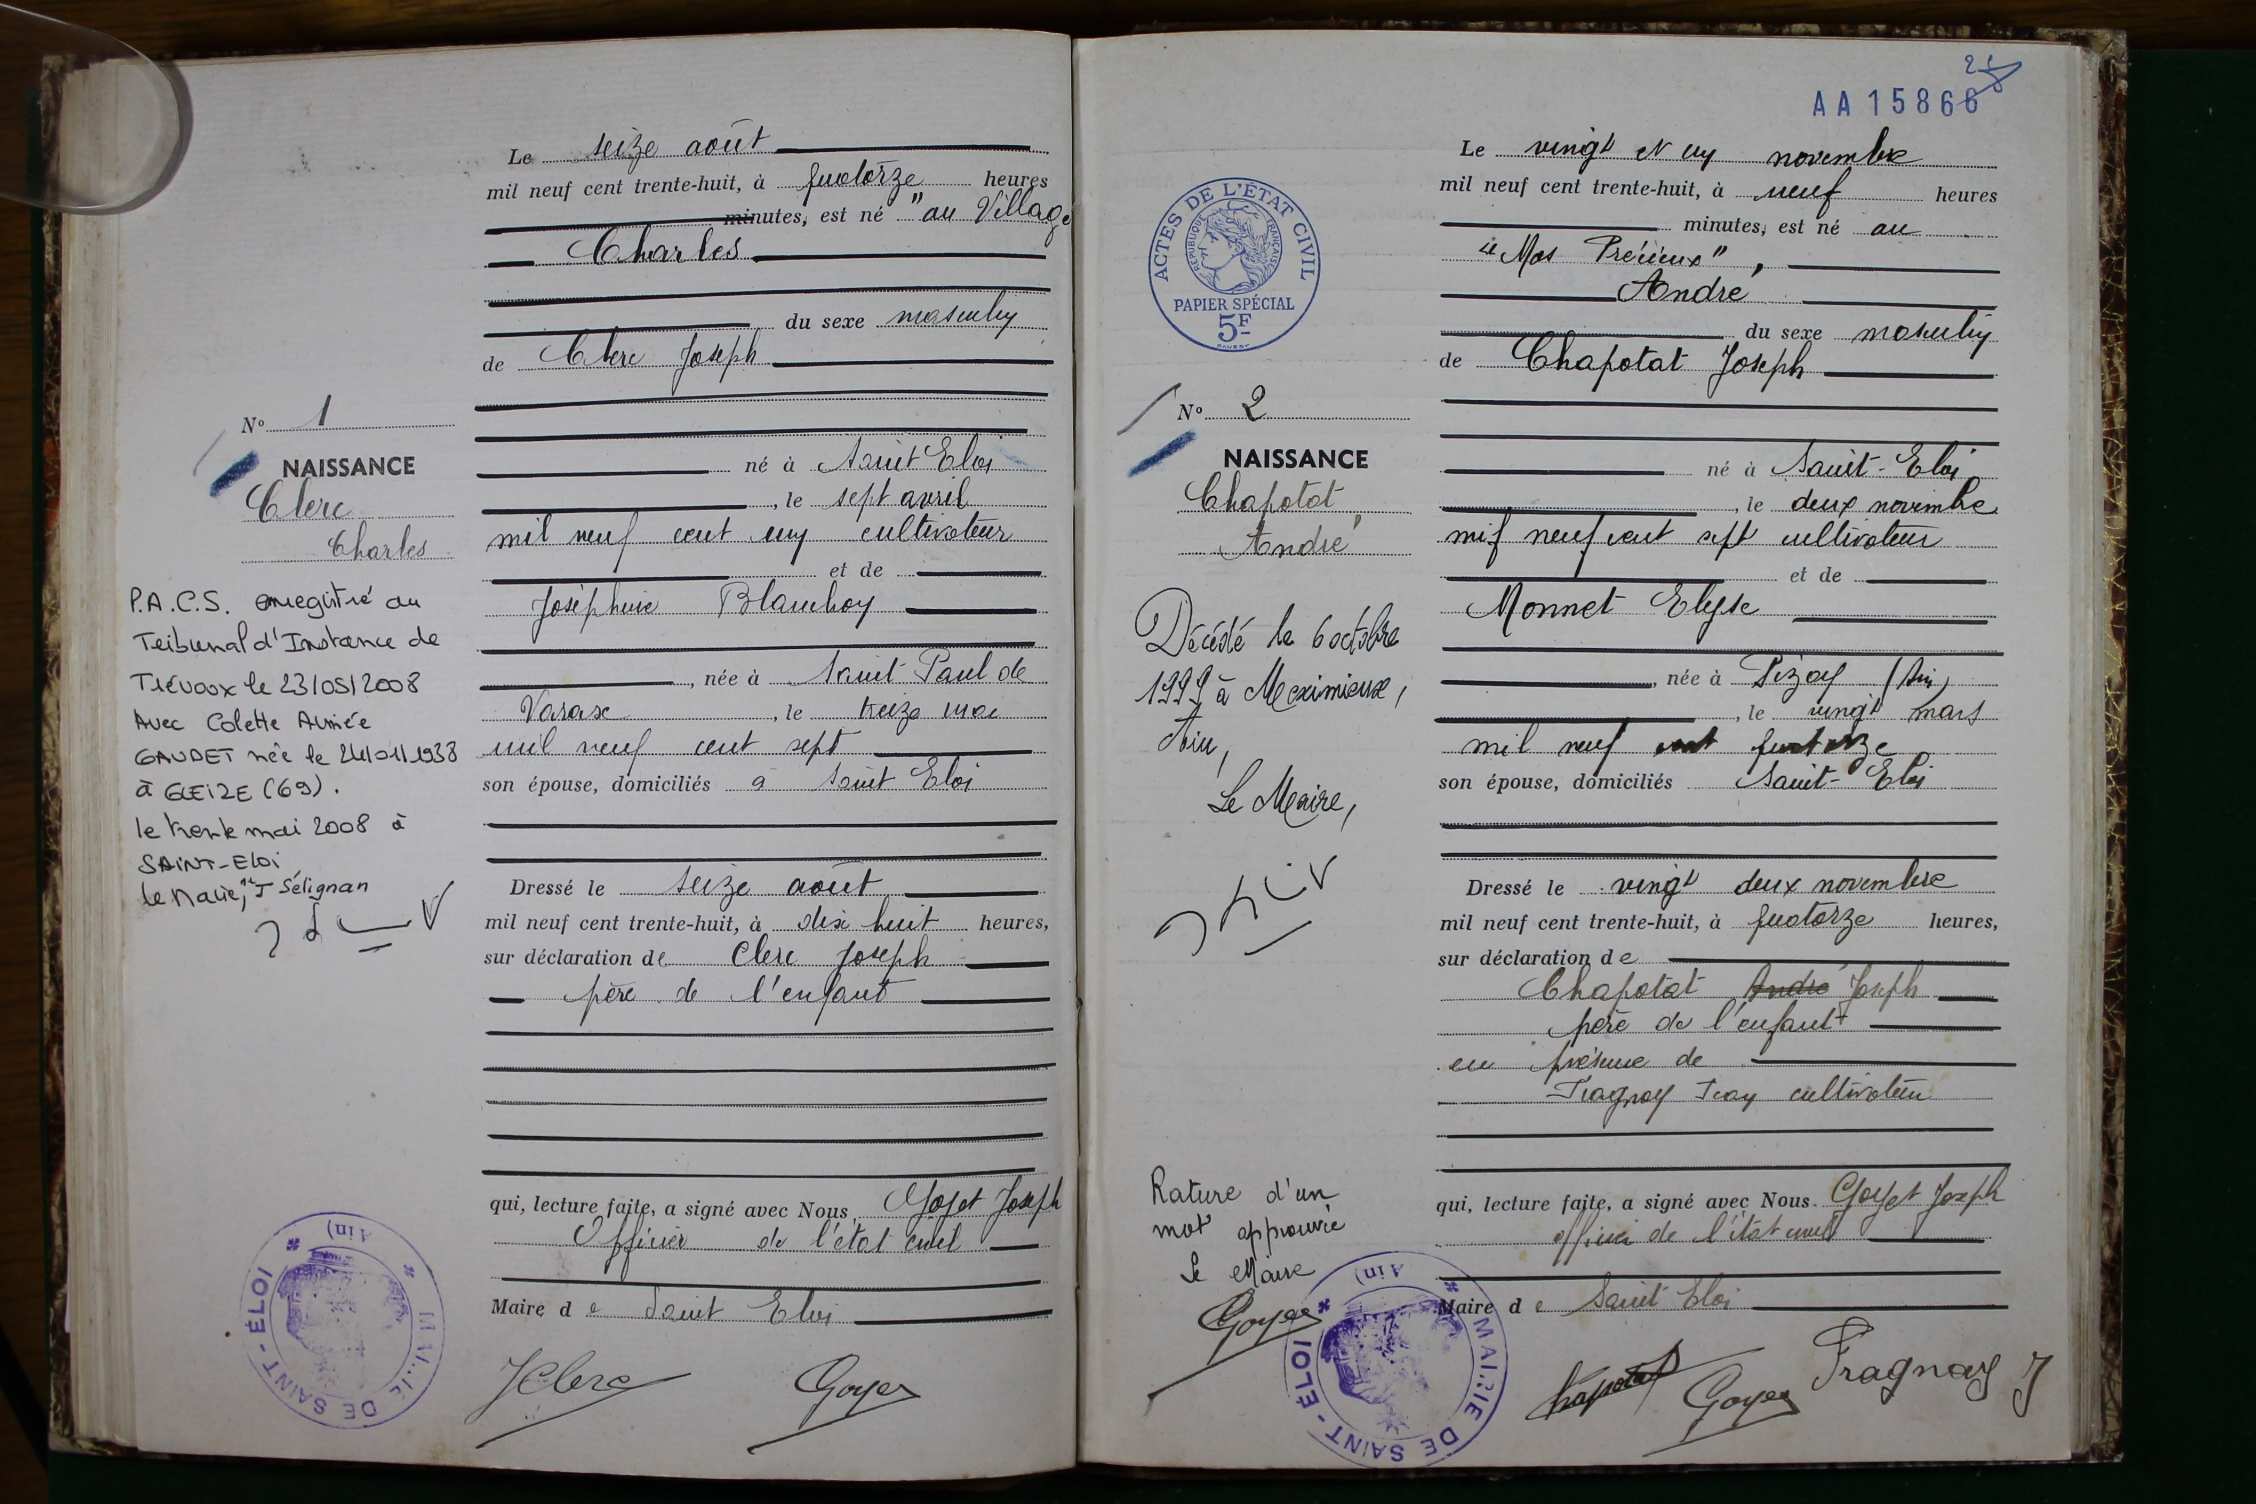 Le seize août
mil neuf cent trente-huit, à quatorze heures
minutes, est né "au Village
Charles
du sexe masculin
de Clerc Joseph
N° 1
NAISSANCE
Clerc
Charles
né à Saint Eloi
, le sept avril
mil neuf cent un cultivateur
et de
Joséphine Blanchoy
, née à Saint Paul de
Varax , le treize mai
mil neuf cent sept
son épouse, domiciliés à Saint Eloi
P.A.C.S. enregistré au
Tribunal d'Instance de
Trévoux le 23/05/2008
Avec Colette Aimée
GAUDET née le 24/01/1938
à GLEIZE (69).
le trente mai 2008 à
SAINT-Eloi
le Maire, J Sélignan
Dressé le seize août
mil neuf cent trente-huit, à dix huit heures,
sur déclaration de Clerc Joseph
père de l'enfant
qui, lecture faite, a signé avec Nous Goyet Joseph
Officier de l'état civil
Maire de Saint Eloi
MAIRIE DE SAINT-ÉLOI
(Ain)
JClerc
Goyet
AA 15866
Le vingt et un novembre
mil neuf cent trente-huit, à neuf heures
minutes, est né au
"Mas Précieux",
André
du sexe masculin
de Chapotat Joseph
ACTES DE L'ÉTAT CIVIL
RÉPUBLIQUE FRANÇAISE
PAPIER SPÉCIAL
5F
N° 2
NAISSANCE
Chapotat
André
né à Saint-Eloi
, le deux novembre
mil neuf cent sept cultivateur
et de
Monnet Elyse
, née à Pizay (Ain)
, le vingt mars
mil neuf cent quatorze
son épouse, domiciliés Saint-Eloi
Décédé le 6 octobre
1999 à Meximieux,
Ain,
Le Maire,
Dressé le vingt deux novembre
mil neuf cent trente-huit, à quatorze heures,
sur déclaration de
Chapotat André Joseph
père de l'enfant
en présence de
Fragnay Jean cultivateur
qui, lecture faite, a signé avec Nous Goyet Joseph
officier de l'état civil
Maire de Saint Eloi
Rature d'un
mot approuvée
Le Maire
Goyet
MAIRIE DE SAINT-ÉLOI
(Ain)
Chapotat
Goyet
Fragnay J